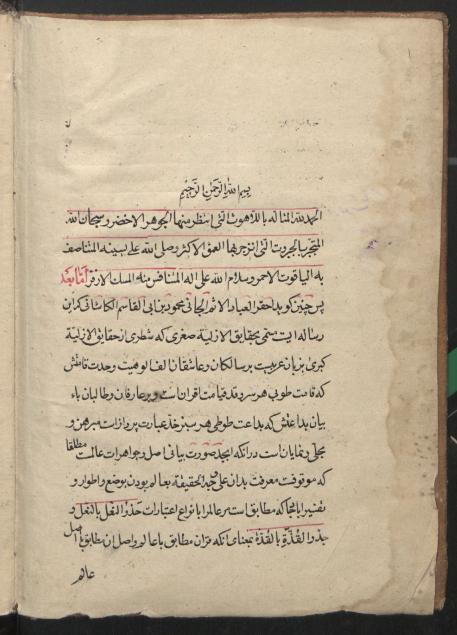 بسم الله الرحمن الرحیم
الحمد لله المتاله باللاهوت التی انتظر منها الجوهر الاخضر و سبحان الله
المتجبر بالجبروت التی انزجر بها العمق الاکثر و صلی الله علی نبینه المتناصف
به الیاقوت الاحمر و سلام الله علی اله المتنافس منه المسک الازفر اما بعد
پس چنین کوید احقر العباد الاثم الجانی محمود بن ابی القاسم الکاشانی که این
رساله ایست مسمی بحقایق الازلیة صغری که شطری از حقایق الازلیة
کبری بزبان عربیت بر سالکان و عاشقان الف الوهیت وحدت قامتش
که قامت طوبی هر سرو قد قیامت اقران است و بر عارفان و طالبان باء
بیان بداعتش که بداعت طوطی هر سبز خد عبارت پرداز است مبرهن و
مجلی و نمایان است در انکه ابجد صورت بیانی اصل و جواهرات عالمست مطلقا
که موقوفست معرفت بدان علی وجه الحقیقة بعالم بودن بوضع و اطوار و
تفسیر اینجا که مطابق است مر عالم را بانواع اعتبارات حذو النعل بالنعل و
حذو القذة بالقذة بمعنای انکه قران مطابق با عالم و اصل ان مطابق با اصل
عالم